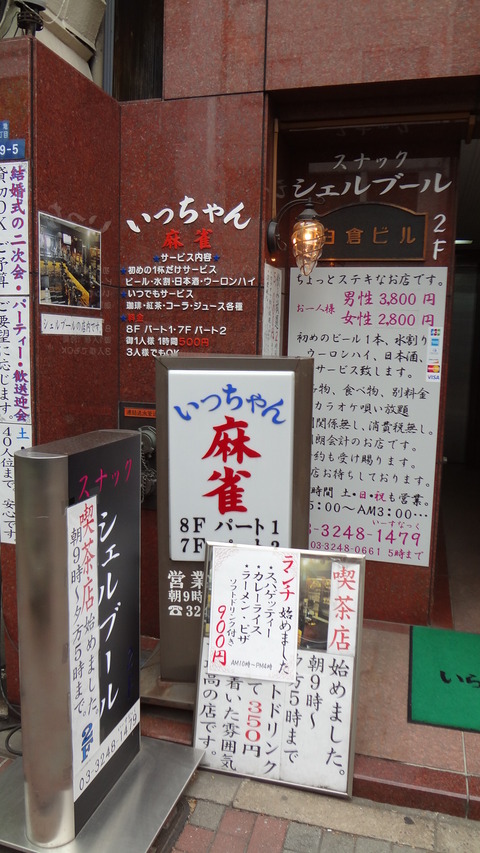 9-5
結婚式の二次会・パーティー・歓送迎会
ご要望に応じます。
土
40人位まで
安心です
シェルブールの店内です
いっちゃん
麻雀
サービス内容
初めの1杯だけサービス
ビール・水割・日本酒・ウーロンハイ
いつでもサービス
珈琲・紅茶・コーラ・ジュース各種
料金
8F パート1・7F パート2
御1人様 1時間500円
3人様でもOK
スナック
シェルブール
2F
白倉ビル
ちょっとステキなお店です。
お一人様
男性 3,800 円
女性 2,800 円
初めのビール1本、水割り
ウーロンハイ、日本酒、
サービス致します。
物、食べ物、別料金
カラオケ唄い放題
間関係無し、消費税無し。
朗会計のお店です。
約も受け賜ります。
店お待ちしております。
時間 土・日・祝も営業。
5:00〜AM3:00…
いーすなっく
3-3248-1479
03-3248-0661 5時まで
VISA
いっちゃん
麻雀
8F パート1
7F
営業
朝9時
☎32
スナック
シェルブール
喫茶店始めました。
朝9時〜夕方5時まで。
2F
03-3248-1479
喫茶店
始めました。
朝9時〜
夕方5時まで
ドリンク
350円
着いた雰囲気
高の店です。
ランチ始めました
・スパゲッティー
・カレーライス
・ラーメン・ピザ
ソフトドリンク付き
900円
AM10時〜PM4時
いら